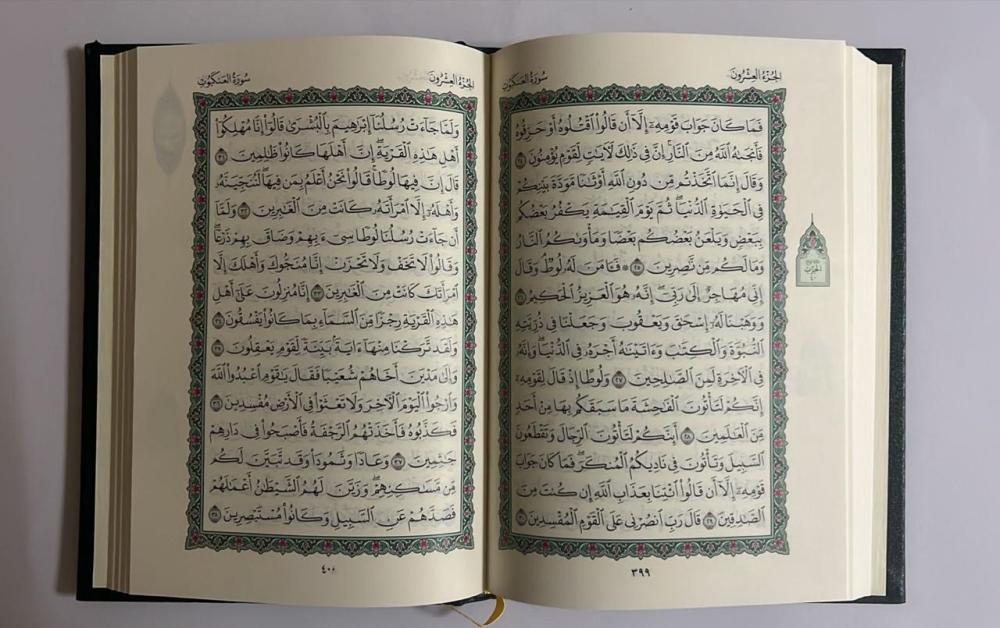 الجزء العشرون
سورة العنكبوت
فَمَا كَانَ جَوَابَ قَوْمِهِۦٓ إِلَّآ أَن قَالُوا۟ ٱقْتُلُوهُ أَوْ حَرِّقُوهُ
فَأَنجَىٰهُ ٱللَّهُ مِنَ ٱلنَّارِ ۚ إِنَّ فِى ذَٰلِكَ لَـَٔايَٰتٍ لِّقَوْمٍ يُؤْمِنُونَ ٢٤
وَقَالَ إِنَّمَا ٱتَّخَذْتُم مِّن دُونِ ٱللَّهِ أَوْثَٰنًا مَّوَدَّةَ بَيْنِكُمْ
فِى ٱلْحَيَوٰةِ ٱلدُّنْيَا ۖ ثُمَّ يَوْمَ ٱلْقِيَٰمَةِ يَكْفُرُ بَعْضُكُم
بِبَعْضٍ وَيَلْعَنُ بَعْضُكُم بَعْضًا وَمَأْوَىٰكُمُ ٱلنَّارُ
وَمَا لَكُم مِّن نَّٰصِرِينَ ٢٥ ۞ فَـَٔامَنَ لَهُۥ لُوطٌ ۘ وَقَالَ
إِنِّى مُهَاجِرٌ إِلَىٰ رَبِّىٓ ۖ إِنَّهُۥ هُوَ ٱلْعَزِيزُ ٱلْحَكِيمُ ٢٦
وَوَهَبْنَا لَهُۥٓ إِسْحَٰقَ وَيَعْقُوبَ وَجَعَلْنَا فِى ذُرِّيَّتِهِ
ٱلنُّبُوَّةَ وَٱلْكِتَٰبَ وَءَاتَيْنَٰهُ أَجْرَهُۥ فِى ٱلدُّنْيَا ۖ وَإِنَّهُۥ
فِى ٱلْـَٔاخِرَةِ لَمِنَ ٱلصَّٰلِحِينَ ٢٧ وَلُوطًا إِذْ قَالَ لِقَوْمِهِۦٓ
إِنَّكُمْ لَتَأْتُونَ ٱلْفَٰحِشَةَ مَا سَبَقَكُم بِهَا مِنْ أَحَدٍ
مِّنَ ٱلْعَٰلَمِينَ ٢٨ أَئِنَّكُمْ لَتَأْتُونَ ٱلرِّجَالَ وَتَقْطَعُونَ
ٱلسَّبِيلَ وَتَأْتُونَ فِى نَادِيكُمُ ٱلْمُنكَرَ ۖ فَمَا كَانَ جَوَابَ
قَوْمِهِۦٓ إِلَّآ أَن قَالُوا۟ ٱئْتِنَا بِعَذَابِ ٱللَّهِ إِن كُنتَ مِنَ
ٱلصَّٰدِقِينَ ٢٩ قَالَ رَبِّ ٱنصُرْنِى عَلَى ٱلْقَوْمِ ٱلْمُفْسِدِينَ ٣٠
٣٩٩
الجزء العشرون
سورة العنكبوت
وَلَمَّا جَآءَتْ رُسُلُنَآ إِبْرَٰهِيمَ بِٱلْبُشْرَىٰ قَالُوٓا۟ إِنَّا مُهْلِكُوٓا۟
أَهْلِ هَٰذِهِ ٱلْقَرْيَةِ ۖ إِنَّ أَهْلَهَا كَانُوا۟ ظَٰلِمِينَ ٣١
قَالَ إِنَّ فِيهَا لُوطًا ۚ قَالُوا۟ نَحْنُ أَعْلَمُ بِمَن فِيهَا ۖ لَنُنَجِّيَنَّهُۥ
وَأَهْلَهُۥٓ إِلَّا ٱمْرَأَتَهُۥ كَانَتْ مِنَ ٱلْغَٰبِرِينَ ٣٢ وَلَمَّآ
أَن جَآءَتْ رُسُلُنَا لُوطًا سِىٓءَ بِهِمْ وَضَاقَ بِهِمْ ذَرْعًا ۖ
وَقَالُوا۟ لَا تَخَفْ وَلَا تَحْزَنْ ۖ إِنَّا مُنَجُّوكَ وَأَهْلَكَ إِلَّا
ٱمْرَأَتَكَ كَانَتْ مِنَ ٱلْغَٰبِرِينَ ٣٣ إِنَّا مُنزِلُونَ عَلَىٰٓ أَهْلِ
هَٰذِهِ ٱلْقَرْيَةِ رِجْزًا مِّنَ ٱلسَّمَآءِ بِمَا كَانُوا۟ يَفْسُقُونَ ٣٤
وَلَقَد تَّرَكْنَا مِنْهَآ ءَايَةًۢ بَيِّنَةً لِّقَوْمٍ يَعْقِلُونَ ٣٥
وَإِلَىٰ مَدْيَنَ أَخَاهُمْ شُعَيْبًا فَقَالَ يَٰقَوْمِ ٱعْبُدُوا۟ ٱللَّهَ
وَٱرْجُوا۟ ٱلْيَوْمَ ٱلْـَٔاخِرَ وَلَا تَعْثَوْا۟ فِى ٱلْأَرْضِ مُفْسِدِينَ ٣٦
فَكَذَّبُوهُ فَأَخَذَتْهُمُ ٱلرَّجْفَةُ فَأَصْبَحُوا۟ فِى دَارِهِمْ
جَٰثِمِينَ ٣٧ وَعَادًا وَثَمُودَا۟ وَقَد تَّبَيَّنَ لَكُم
مِّن مَّسَٰكِنِهِمْ ۖ وَزَيَّنَ لَهُمُ ٱلشَّيْطَٰنُ أَعْمَٰلَهُمْ
فَصَدَّهُمْ عَنِ ٱلسَّبِيلِ وَكَانُوا۟ مُسْتَبْصِرِينَ ٣٨
٤٠٠